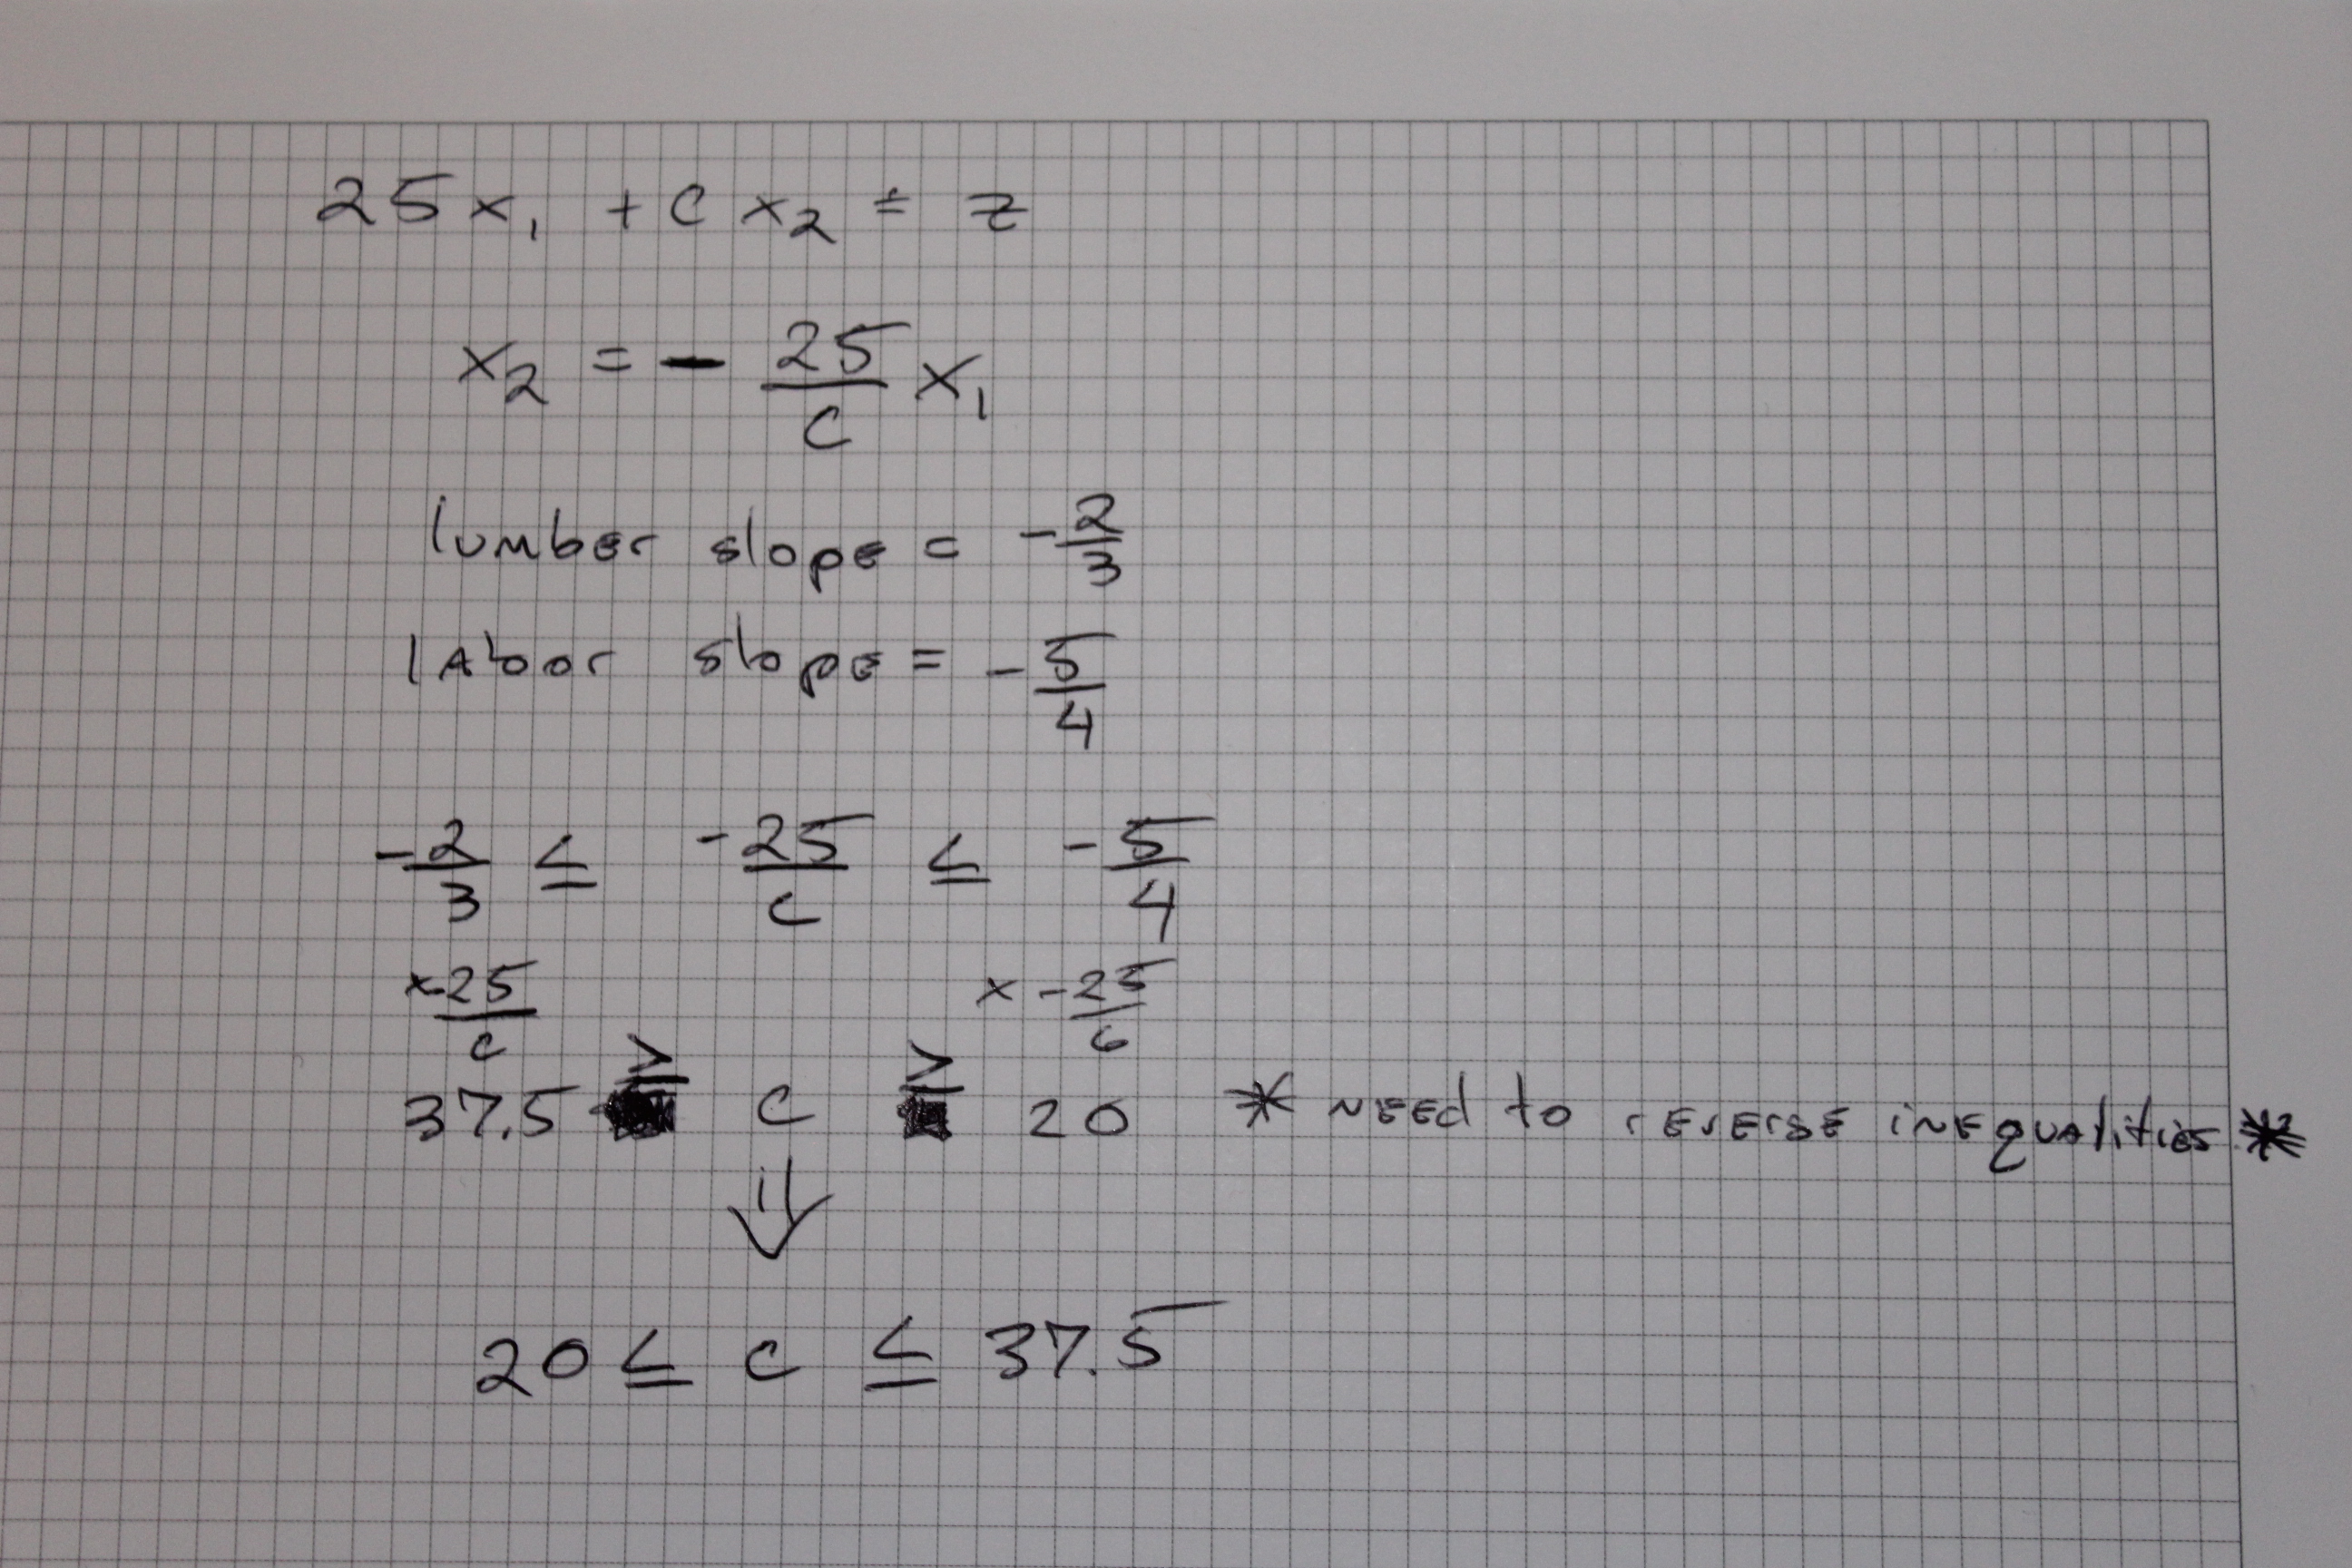 25x₁ + c x₂ = z
x₂ = - 25/c x₁
lumber slope = -2/3
labor slope = -5/4
-2/3 ≤ -25/c ≤ -5/4
x-25/c x -25/c
37.5 ≥ c ≥ 20 * need to reverse inequalities *
⇓
20 ≤ c ≤ 37.5